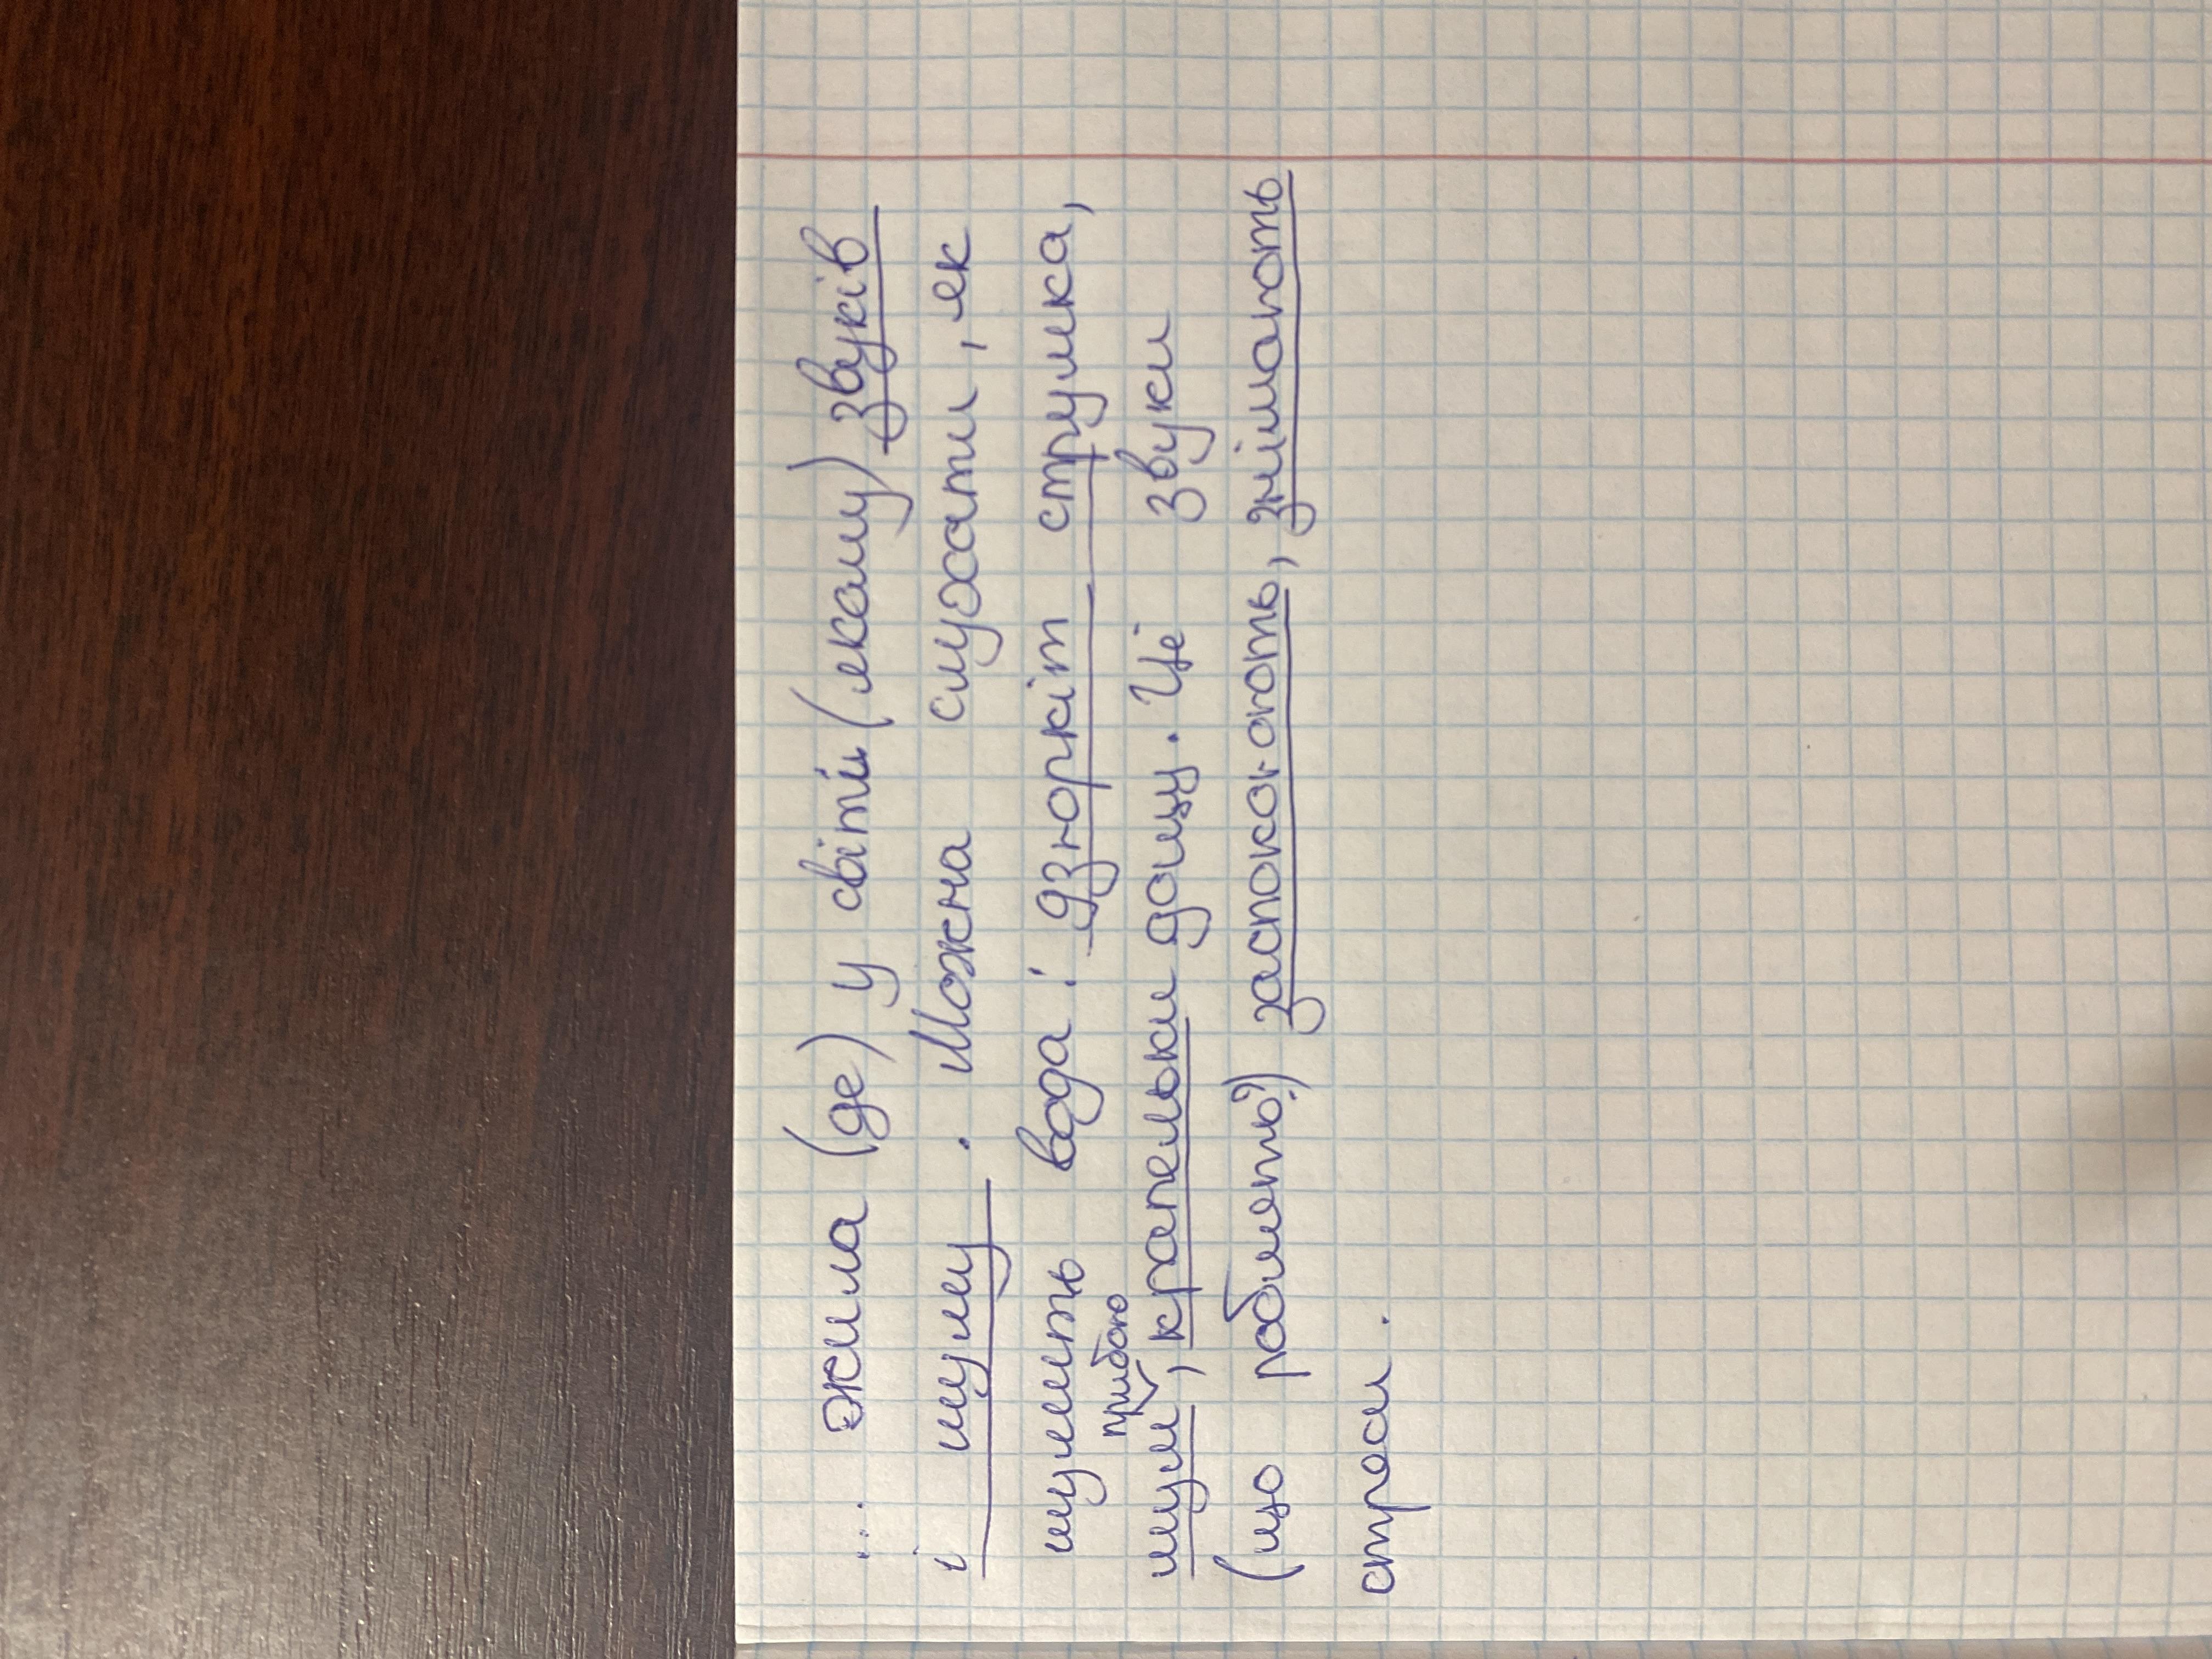 ... жила (де) у світі (якому) звуків
і шуму. Можна слухати, як
шумить вода: дзюркіт струмка,
шум прибою, крапельки дощу. Це звуки
(що роблять?) заспокоюють, знімають
стреси.